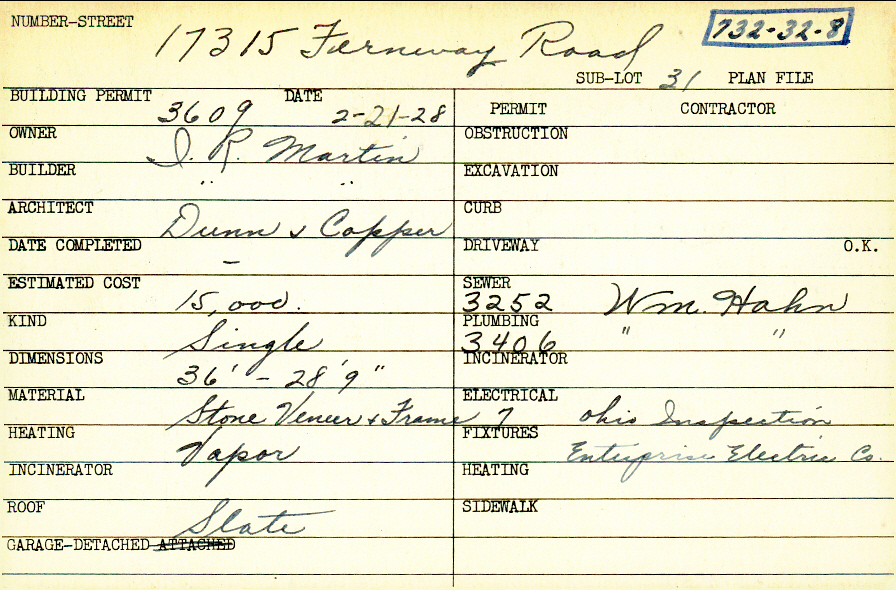 NUMBER-STREET 17315 Fernway Road 732-32-8
SUB-LOT 31 PLAN FILE
BUILDING PERMIT 3609 DATE 2-21-28
OWNER I. R. Martin
BUILDER " "
ARCHITECT Dunn & Copper
DATE COMPLETED –
ESTIMATED COST 15,000.
KIND Single
DIMENSIONS 36' - 28'9"
MATERIAL Stone Veneer & Frame
HEATING Vapor
INCINERATOR
ROOF Slate
GARAGE-DETACHED ATTACHED
PERMIT CONTRACTOR
OBSTRUCTION
EXCAVATION
CURB
DRIVEWAY O.K.
SEWER 3252 Wm. Hahn
PLUMBING 3406 " "
INCINERATOR
ELECTRICAL 7 Ohio Inspection
FIXTURES Enterprise Electric Co.
HEATING
SIDEWALK